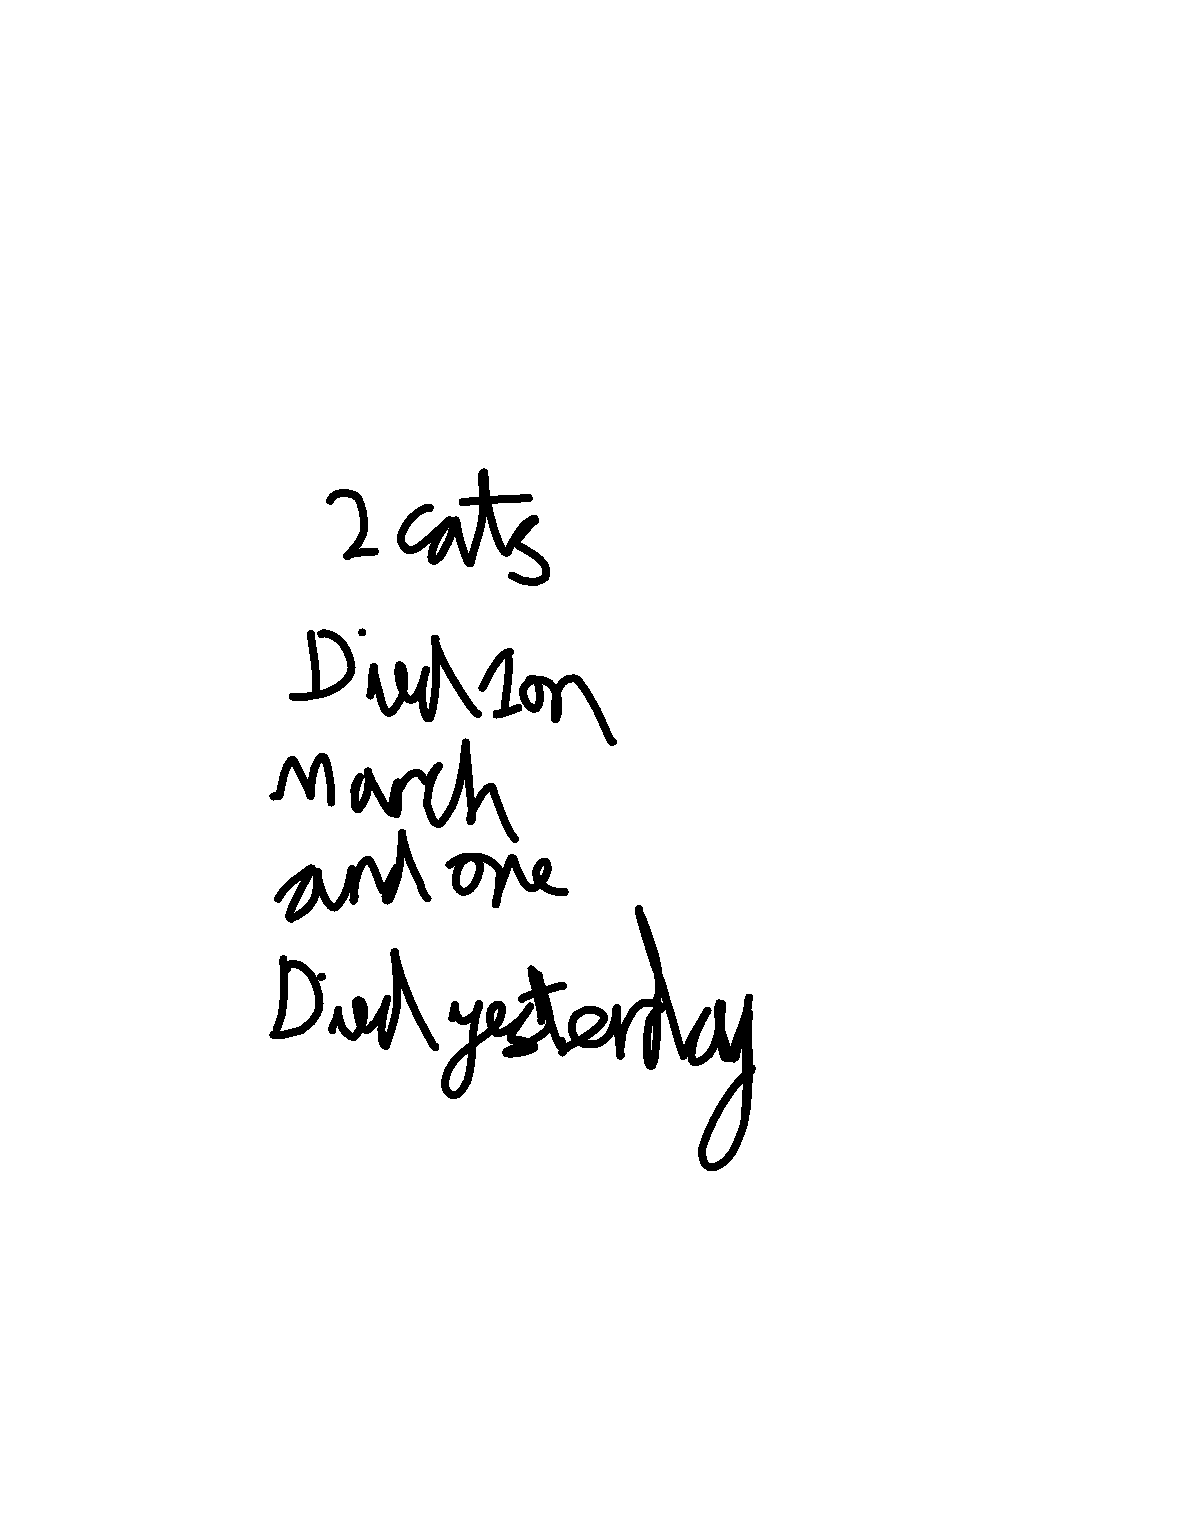 2 cats
Died 1 on
March
and one
Died yesterday